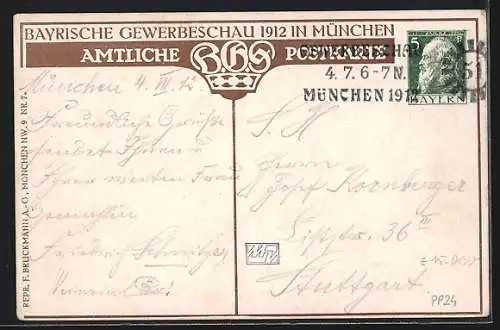 BAYRISCHE GEWERBESCHAU 1912 IN MÜNCHEN
AMTLICHE POSTKARTE
GEWERBESCHAU
4. 7. 6-7 N.
MÜNCHEN 1912
5
BAYERN
München 4. VII. 12
Freundliche Grüße
sendet Ihnen u
Ihrer werten Frau
Gemahlin
Friedrich
S. H.
Herrn
Josef Kornberger
36 III
Stuttgart
PP24
REPR. F. BRUCKMANN A.-G. MÜNCHEN NW. 9 NR. 7